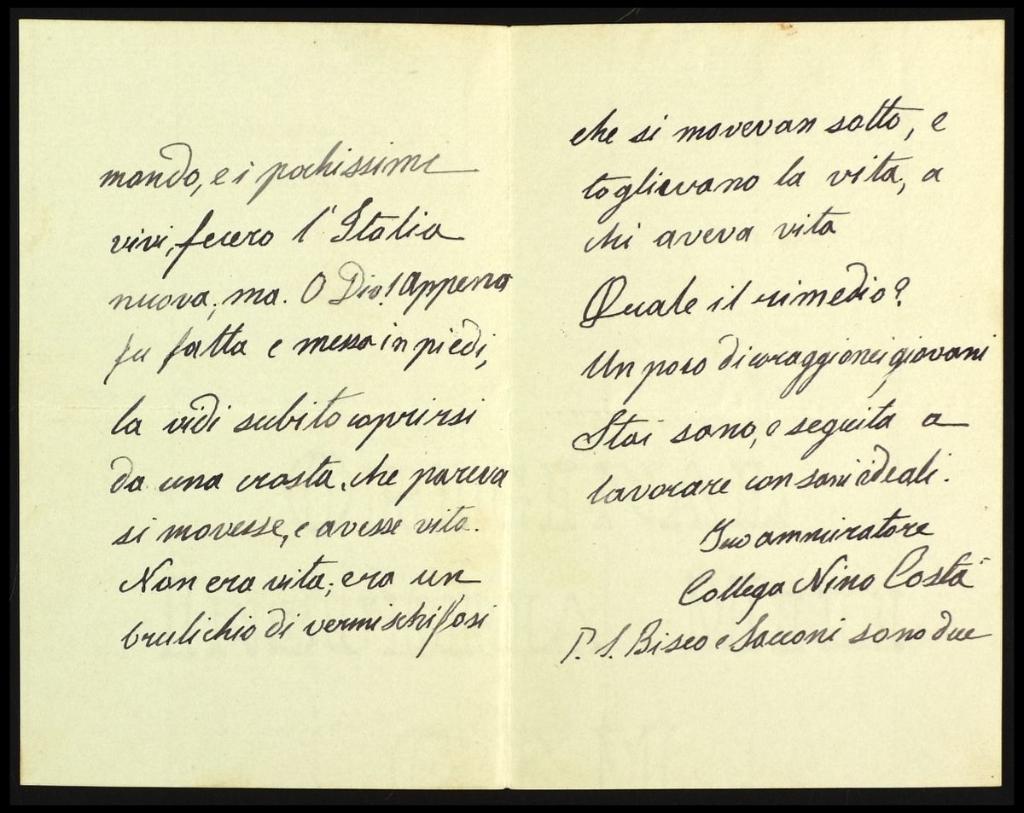 mondo, e i pochissimi
vivi, fecero l'Italia
nuova, ma. O Dio! Appena
fu fatta e messa in piedi,
la vidi subito coprirsi
da una crosta, che pareva
si movesse, e avesse vita.
Non era vita, era un
brulichio di vermi schifosi
che si movevan sotto, e
toglievano la vita, a
chi aveva vita
Quale il rimedio?
Un poco di coraggio nei giovani
Stai sano, e seguita a
lavorare con sani ideali.
Tuo ammiratore
Collega Nino Costa
P. S. Biseo e Sacconi sono due